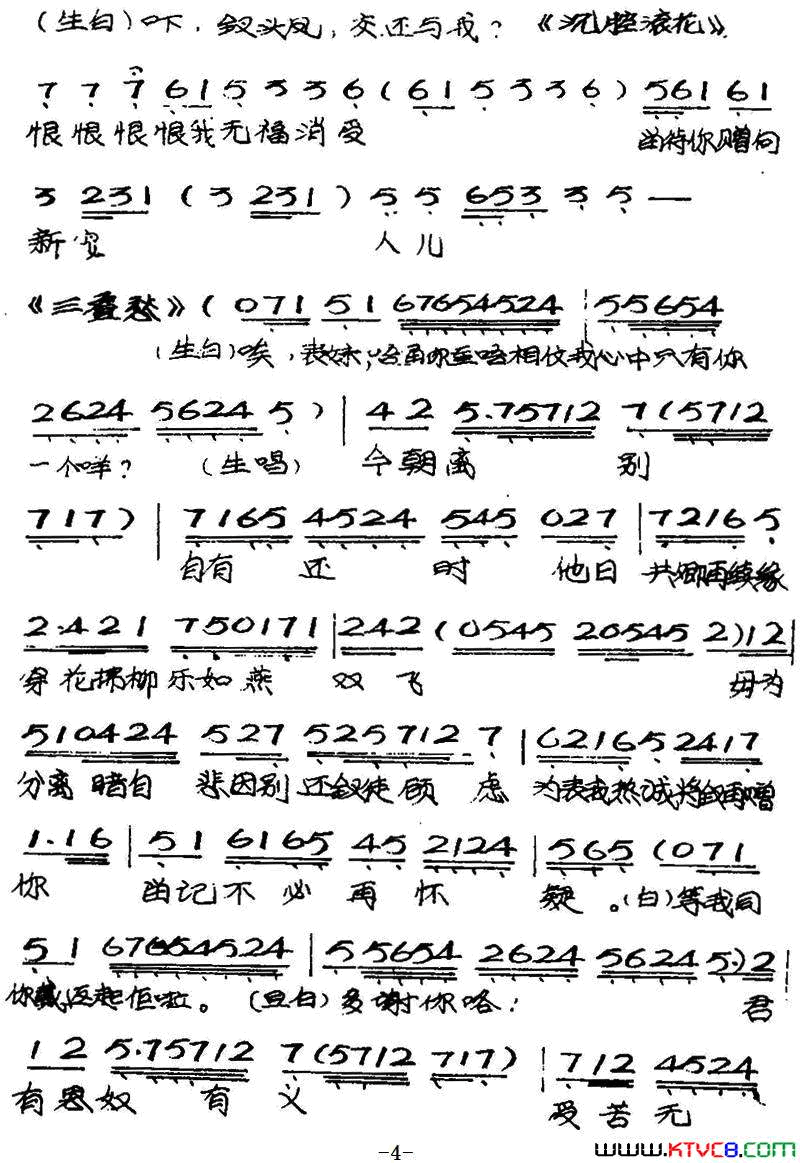 (生白)吓,釵头凤,交还与我?《沉腔滚花》
7 7 7 61 5 3 3 6 (61 5 3 3 6) 561 61
恨恨恨恨我无福消受 留待你赠向
3 231 (3 231) 5 5 653 3 5 —
新 人儿
《三叠愁》(071 51 67654524 | 55654
(生白)唉,表妹, 相仪我心中只有你
2624 5624 5) | 42 5.75712 7(5712
一个咩?(生唱) 今朝离 别
717) | 7165 4524 545 027 | 72165
自有 还 时 他日 共卿再续缘
2.421 750171 | 242 (0545 20545 2)12 |
穿花拂柳乐如燕 双飞 毋为
510424 527 525712 7 | 02165 2417
分离暗自 悲因别还釵徒顾虑 为表我热诚将釵再赠
1.16 | 51 6165 45 2124 | 565 (071
你 留记不必再怀 疑。(白)等我同
51 67654524 | 5 5654 2624 5624 5.)2
你戴返起佢啦。(旦白)多谢你咯! 君
12 5.75712 7(5712 717) | 712 4524
有恩奴 有 义 受苦无
-4-
www.KTVC8.com